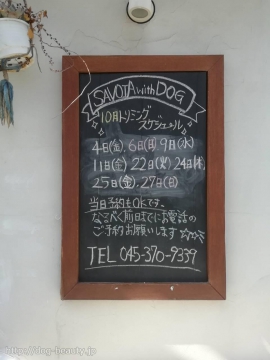 SAVOIA with DOG
10月トリミング
スケジュール
4日(金), 6日(日) 9日(水)
11日(金) 22日(火) 24日(木)
25日(金), 27日(日)
当日予約もOKです。
なるべく前日までにお電話の
ご予約お願いします
TEL 045-370-9339
http://dog-beauty.jp